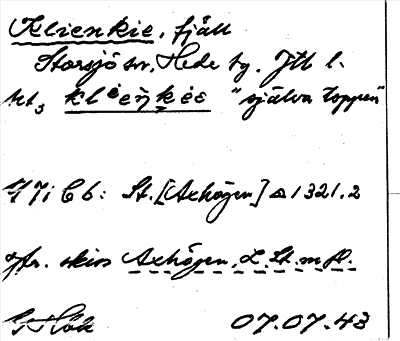 Klienkie, fjäll
Storsjö sn, Hede tg. Jtl l.
klieŋ̀kėe "själva toppen"
17 Ji C b: St. [Axhögen] △ 1321.2
jfr. skiss Axhögen, L. St. m fl.
07.07.43